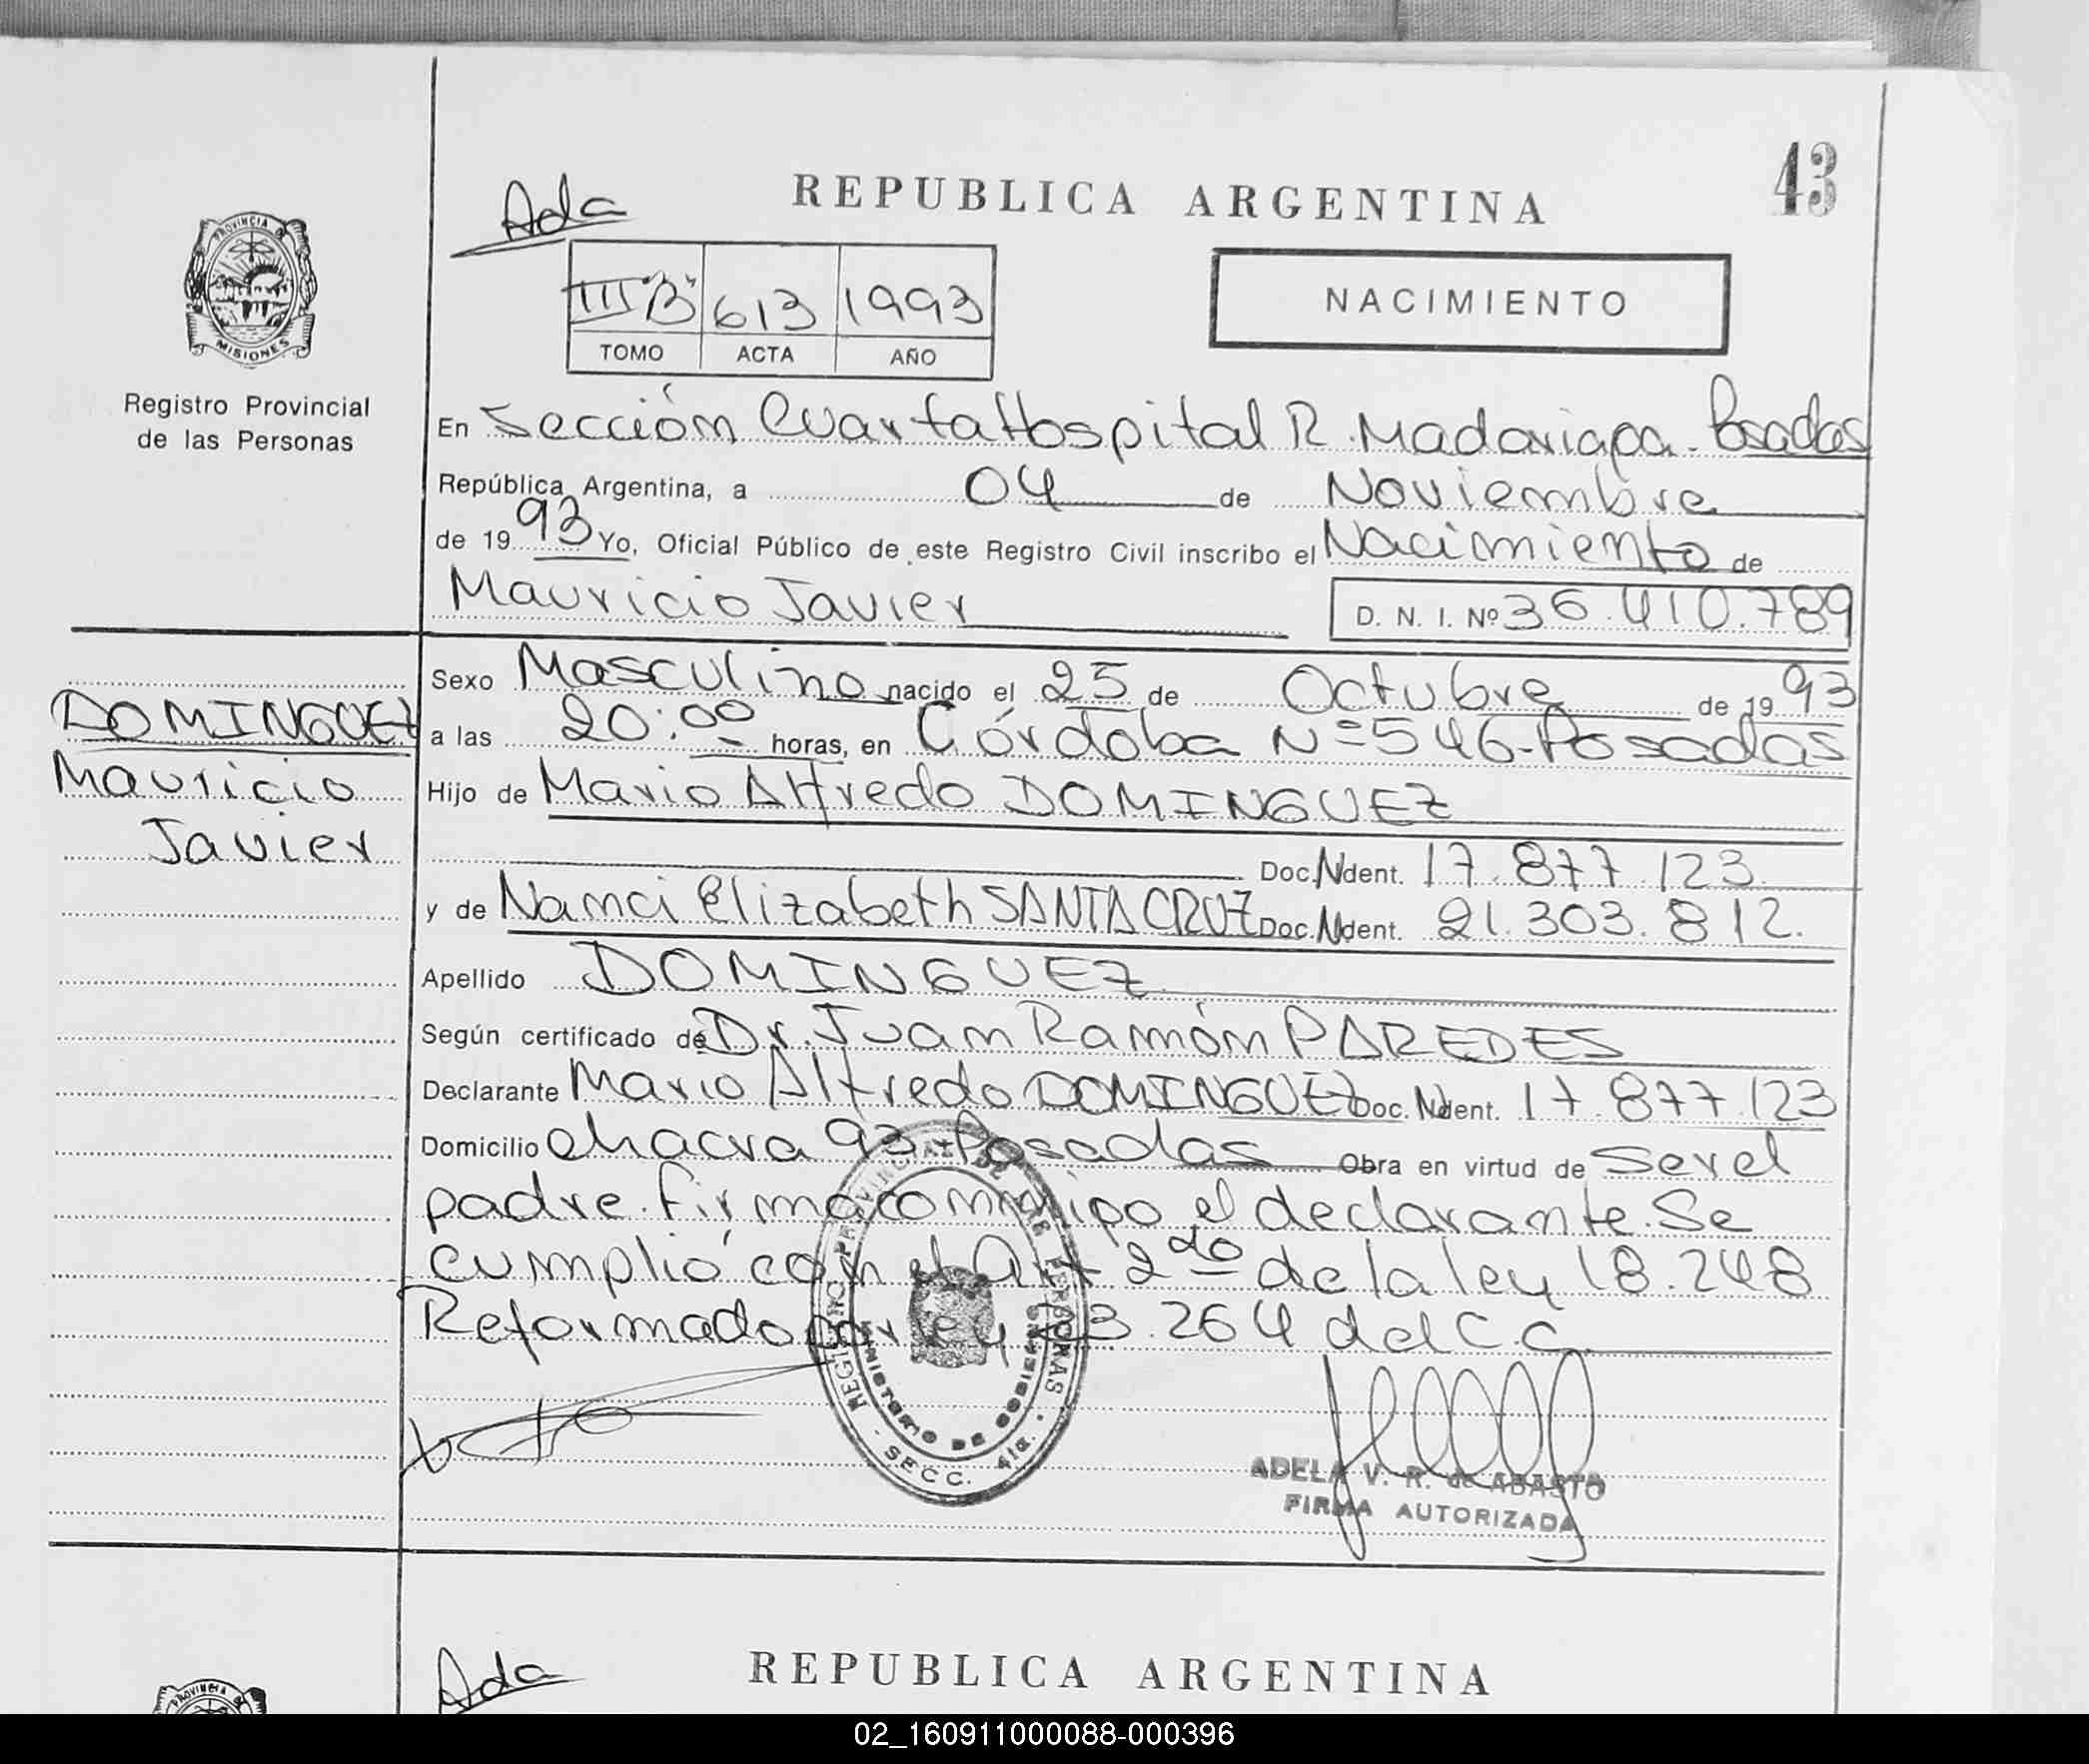 43
Ada
REPUBLICA ARGENTINA
PROVINCIA DE
MISIONES
III "B" 613 1993
TOMO ACTA AÑO
NACIMIENTO
Registro Provincial
de las Personas
En Sección Cuarta Hospital R. Madariaga - Posadas
República Argentina, a 04 de Noviembre
de 1993 Yo, Oficial Público de este Registro Civil inscribo el Nacimiento de
Mauricio Javier D. N. I. Nº 36.410.789
DOMINGUEZ
Mauricio
Javier
Sexo Masculino nacido el 25 de Octubre de 1993
a las 20:00 horas, en Córdoba Nº 546 - Posadas
Hijo de Mario Alfredo DOMINGUEZ
Doc. N Ident. 17.877.123
y de Nanci Elizabeth SANTA CRUZ Doc. N Ident. 21.303.812.
Apellido DOMINGUEZ
Según certificado de Dr. Juan Ramón PAREDES
Declarante Mario Alfredo DOMINGUEZ Doc. N Ident. 17.877.123
Domicilio Chacra 93 - Posadas Obra en virtud de Ser el
padre. Firma conmigo el declarante. Se
cumplió con el Art 2do de la ley 18.248
Reformado por ley 23.264 del C.C.
REGISTRO PROVINCIAL DE LAS PERSONAS
MINISTERIO DE GOBIERNO
SECC. 4ta.
ADELA V. R. de ABASTO
FIRMA AUTORIZADA
Ada
REPUBLICA ARGENTINA
PROVINCIA DE
02_160911000088-000396